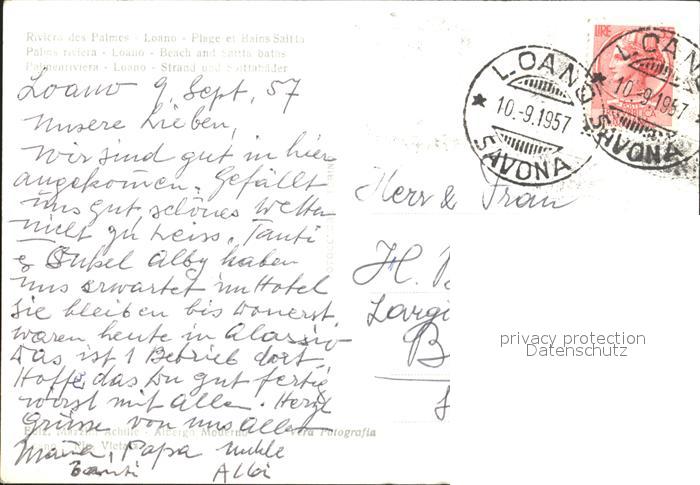 Riviera des Palmes - Loano - Plage et Bains Saitta
Palms riviera - Loano - Beach and Saitta baths
Palmenriviera - Loano - Strand und Saittabäder
Loano 9. Sept. 57
Unsere Lieben,
Wir sind gut in hier
angekommen. Gefällt
uns gut, schönes Wetter
nicht zu heiss. Tanti
& Onkel Alby haben
uns erwartet im Hotel
sie bleiben bis Donerst.
waren heute in Alassio
Das ist 1 Betrieb dort
Hoffe das Du gut fertig
wirst mit Alle. Herzl
Grüsse von uns Allen
Mama, Papa
Tanti Albi
Achille - Albergo Moderno
Vera Fotografia
LOANO
10.-9.1957
SAVONA
LIRE
LOANO
10.-9.1957
SAVONA
Herr & Frau
H.
B
privacy protection
Datenschutz